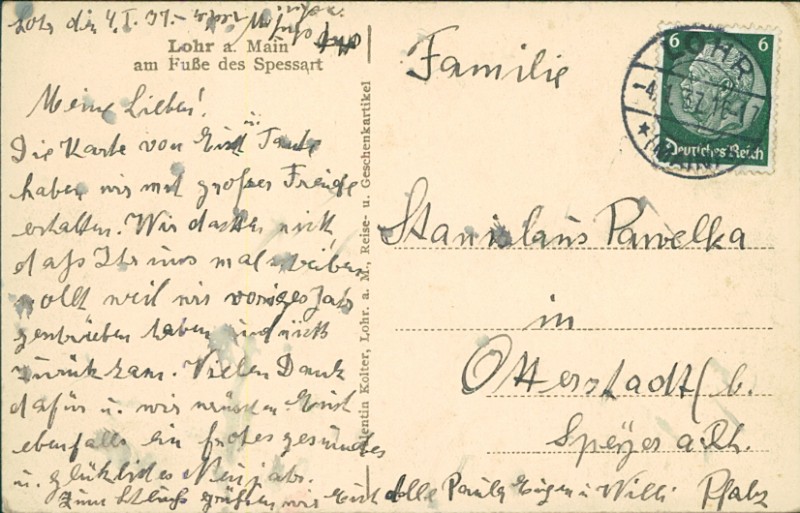 Lohr den 4.I.37.
Lohr a. Main
am Fuße des Spessart
Meine Lieben!
Die Karte von Euch u. Tante
haben wir mit großer Freude
erhalten. Wir dachten nicht
daß Ihr uns mal schreiben
wollt weil wir voriges Jahr
geschrieben haben und nichts
zurück kam. Vielen Dank
dafür u. wir wünschen Euch
ebenfalls ein frohes gesundes
u. glückliches Neujahr.
Zum Schluß grüßen wir Euch alle Paula Eugen u Willi
Valentin Kolter, Lohr. a. M., Reise- u. Geschenkartikel
6 6
Deutsches Reich
LOHR
(MAIN)
Familie
Stanislaus Pawelka
in
Otterstadt/b.
Speyer a. Rh.
Pfalz